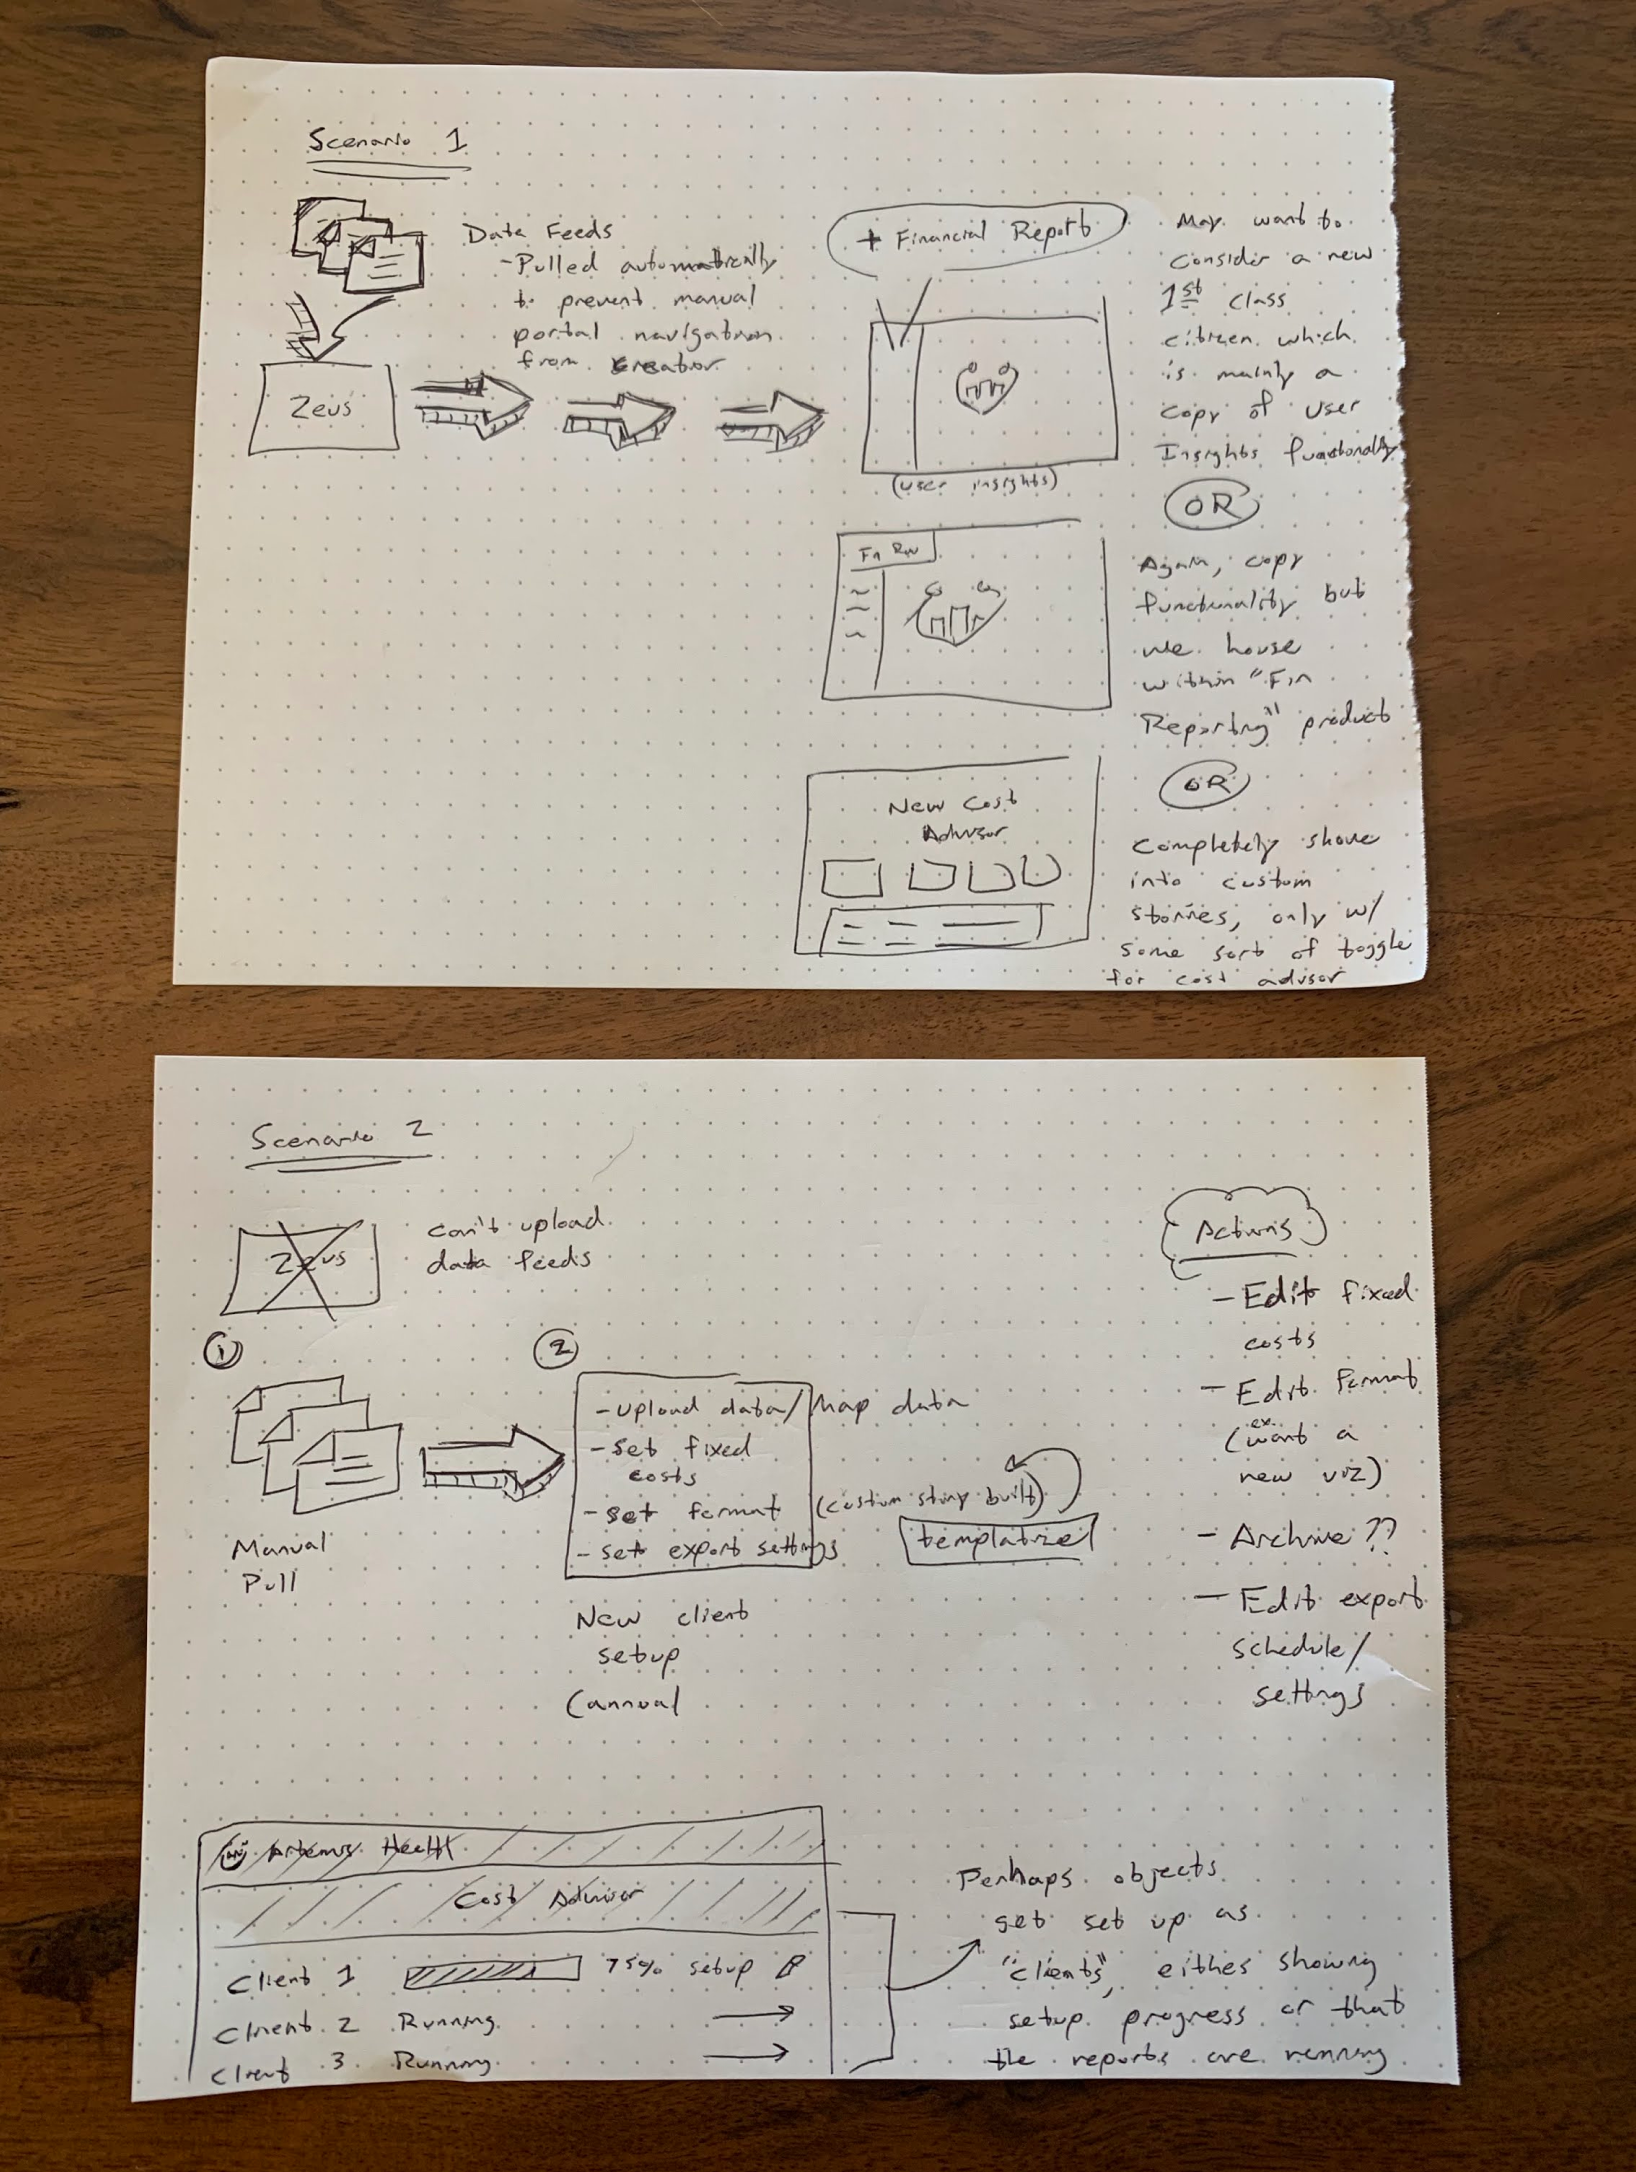 Scenario 1
Data Feeds
- Pulled automatically
to prevent manual
portal navigation
from creator
Zeus
+ Financial Report
(user insights)
May want to
consider a new
1st class
citizen which
is mainly a
copy of user
Insights functionality
OR
Again, copy
functionality but
we house
within "Fin
Reporting" product
OR
New Cost
Advisor
Completely shove
into custom
stories, only w/
some sort of toggle
for cost advisor
Scenario 2
Zeus
can't upload
data feeds
1
Manual
Pull
2
- upload data/map data
- set fixed
costs
- set format (custom story built)
- set export settings
templatize
New client
setup
(annual
Actions
- Edit fixed
costs
- Edit format
(ex. want a
new viz)
- Archive??
- Edit export
schedule/
settings
Artemis Health
Cost Advisor
Client 1 75% setup
Client 2 Running
Client 3 Running
Perhaps objects
get set up as
"clients", either showing
setup progress or that
the reports are running